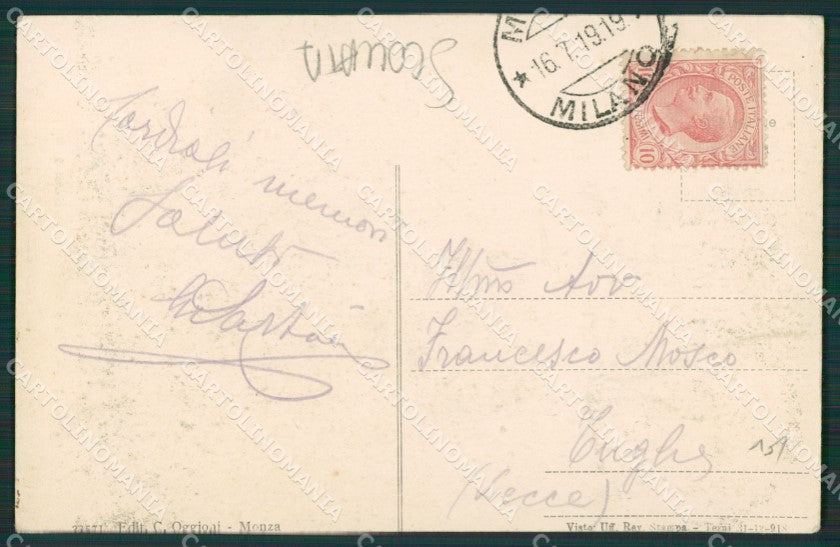 SEGNATA
MILANO
16.7.1919
MILANO
POSTE ITALIANE
10
Cordiali memori
Saluti
Illmo Avv
Francesco Mosco
Tuglie
(Lecce)
151
23571 Edit. C. Oggioni - Monza
Visto: Uff. Rev. Stampa - Terni 31-12-918
CARTOLINOMANIA